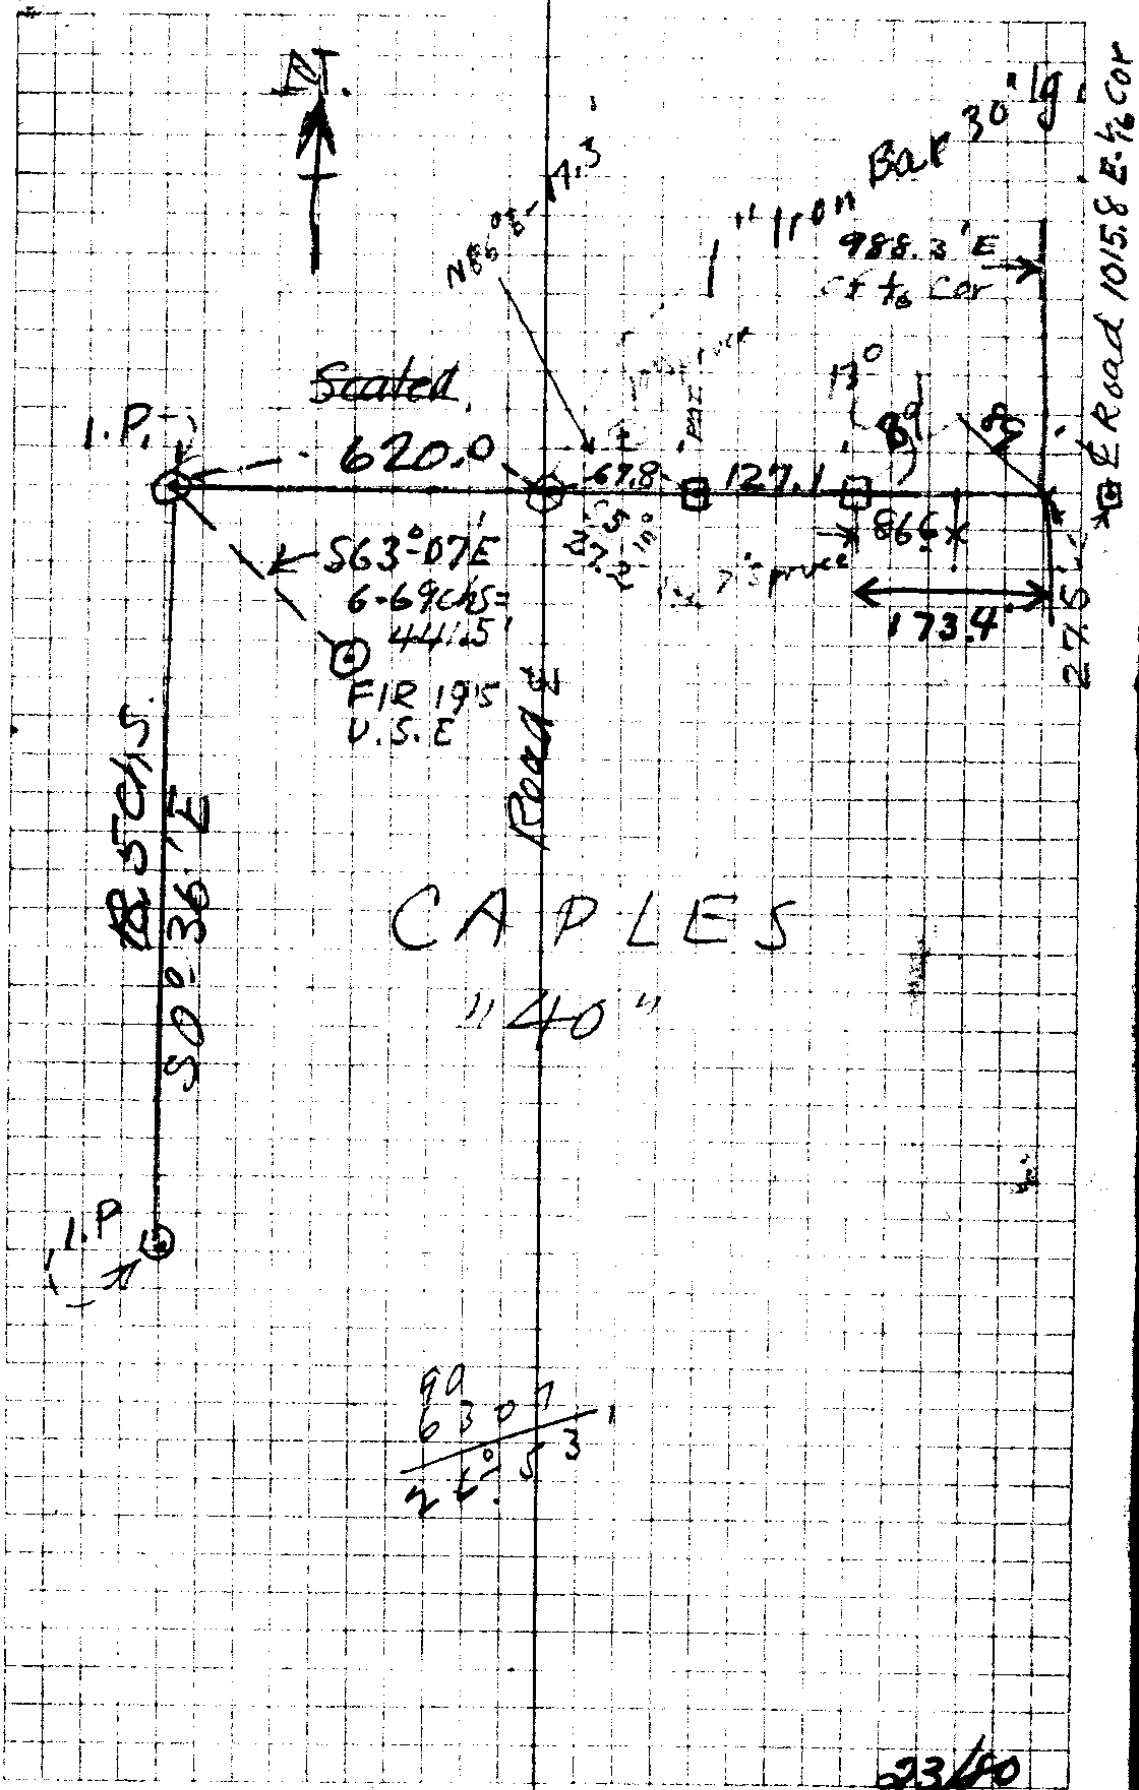 N.
1" Iron Bar 30" lg.
988.3' E
of 1/16 Cor
℄ Road 1015.8 E. 1/16 Cor
Scaled
I.P.
620.0
67.8
127.1
13°
8°
866
173.4'
27.5'
7" spruce
S63°-07'E
6-69chs=
441.5'
FIR 195
U.S.E
Road ℄
5 chs.
S0°-36'E
CAPLES
"40"
I.P
90
63 07
26°-53'
23/80